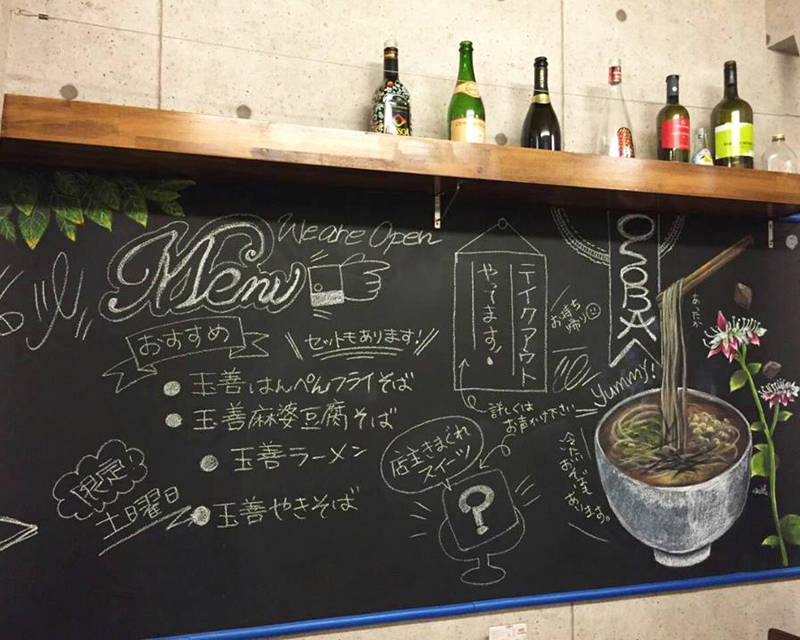 Menu
We are Open
おすすめ
セットもあります!
玉善はんぺんフライそば
玉善麻婆豆腐そば
玉善ラーメン
限定
土曜日
玉善やきそば
店主きまぐれ
スイーツ
?
テイクアウト
やってます!
お持ち
帰り
詳しくは
お声かけ下さい
OSOBA
Yummy!
あったか
冷たい
おそばも
あります。